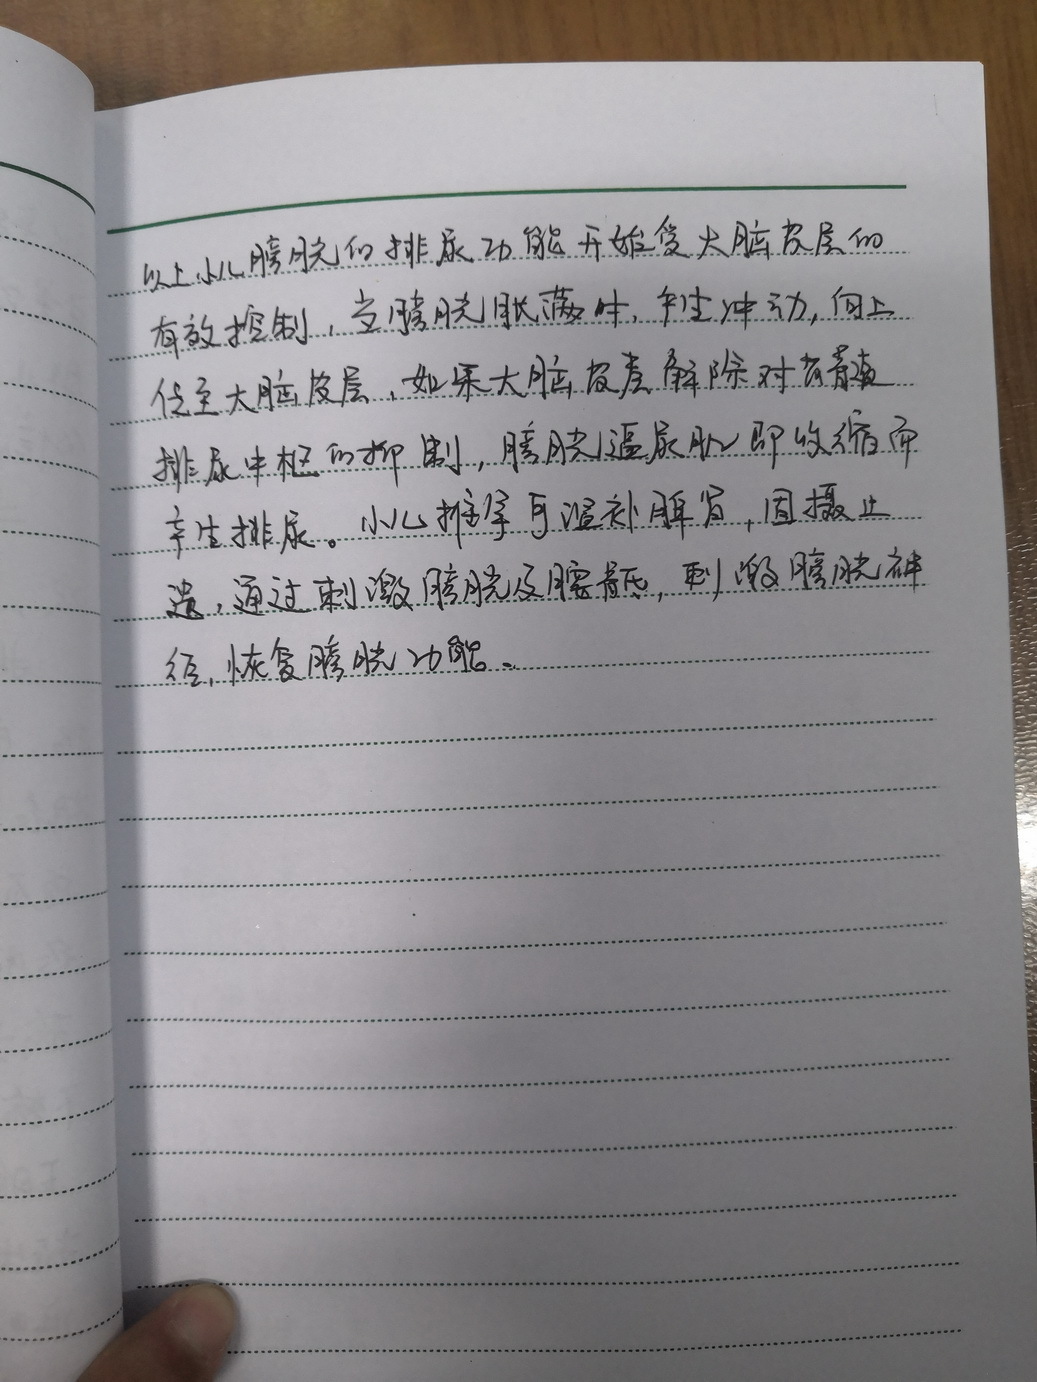 以上小儿膀胱的排尿功能开始受大脑皮层的
有效控制，当膀胱胀满时，产生冲动，向上
传至大脑皮层，如果大脑皮层解除对脊髓
排尿中枢的抑制，膀胱逼尿肌即收缩而
产生排尿。小儿推拿可温补脾肾，固摄止
遗，通过刺激膀胱及腰骶，刺激膀胱神
经，恢复膀胱功能。